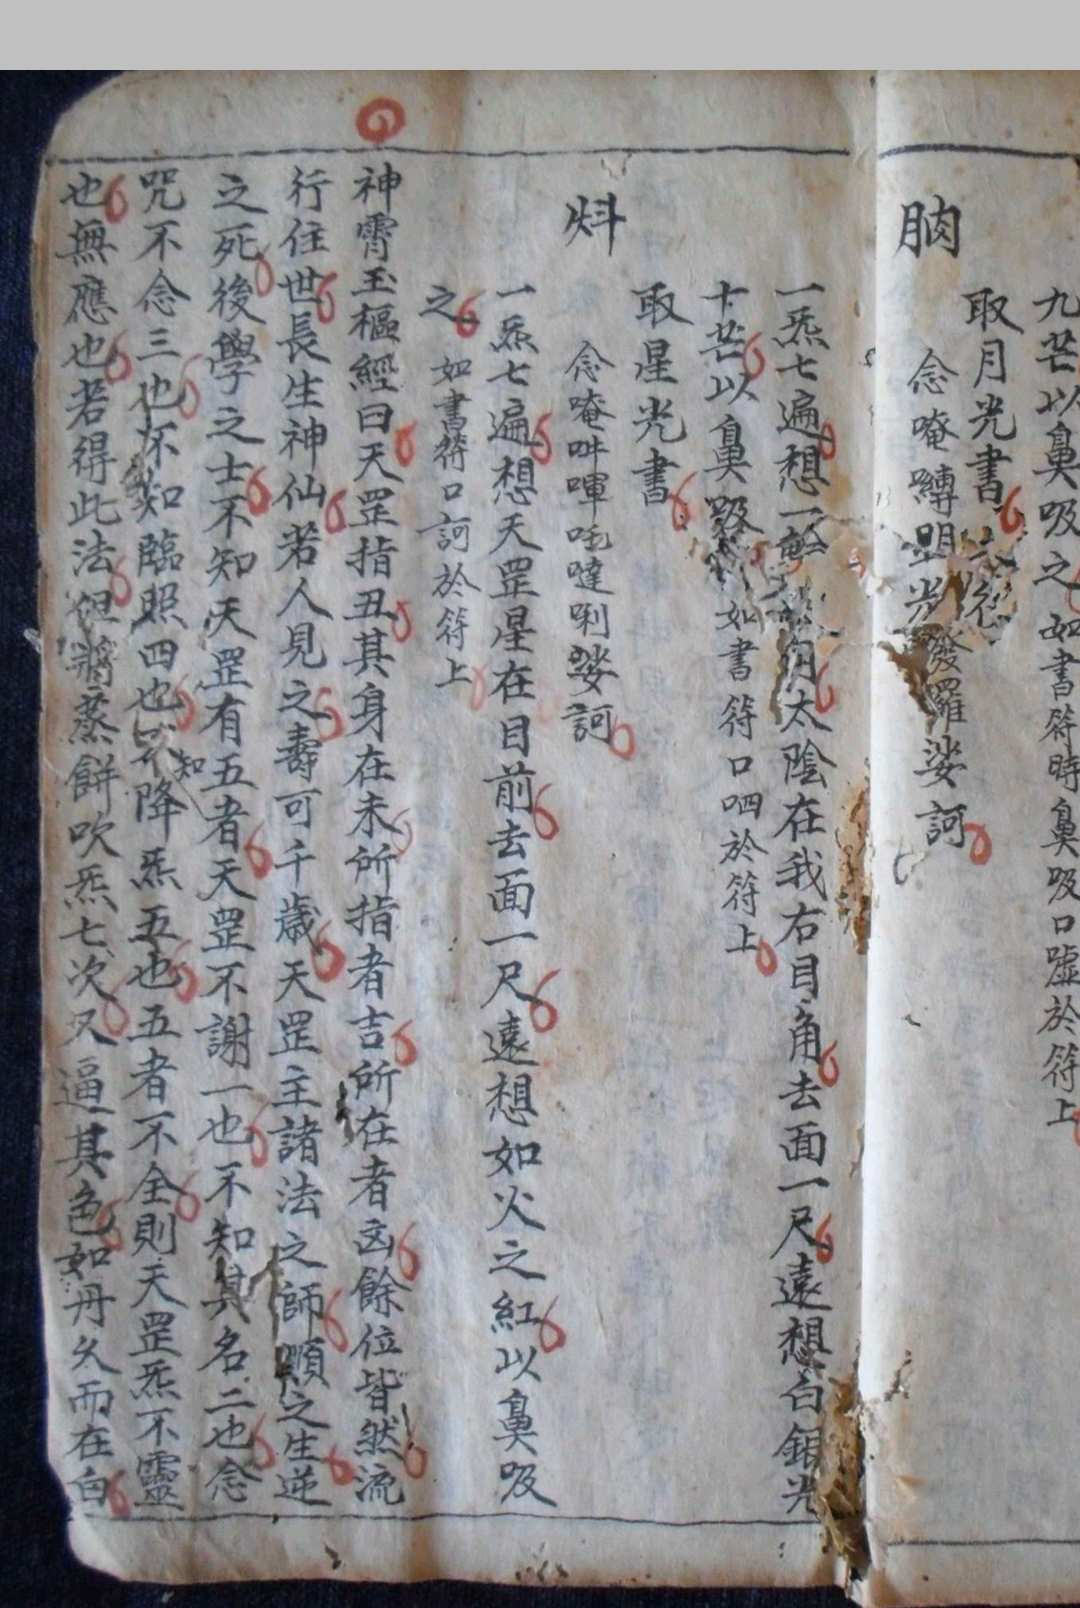 九芒以鼻吸之如書符時鼻吸口噓於符上
取月光書
念唵
娑訶
一炁七遍想一
月太陰在我右目角去面一尺遠想白銀光
十芒以鼻吸
如書符口呬於符上
取星光書
念唵吽㖇吒噠唎娑訶
一炁七遍想天罡星在目前去面一尺遠想如火之紅以鼻吸
之如書符口訶於符上
神霄玉樞經曰天罡指丑其身在未所指者吉所在者凶餘位皆然流
行住世長生神仙若人見之壽可千歲天罡主諸法之師順之生逆
之死後學之士不知天罡有五者天罡不謝一也不知其名二也念
咒不念三也不知臨照四也不知降炁五也五者不全則天罡炁不靈
也無應也若得此法但將蒸餅吹炁七次又逼其色如丹久而在白